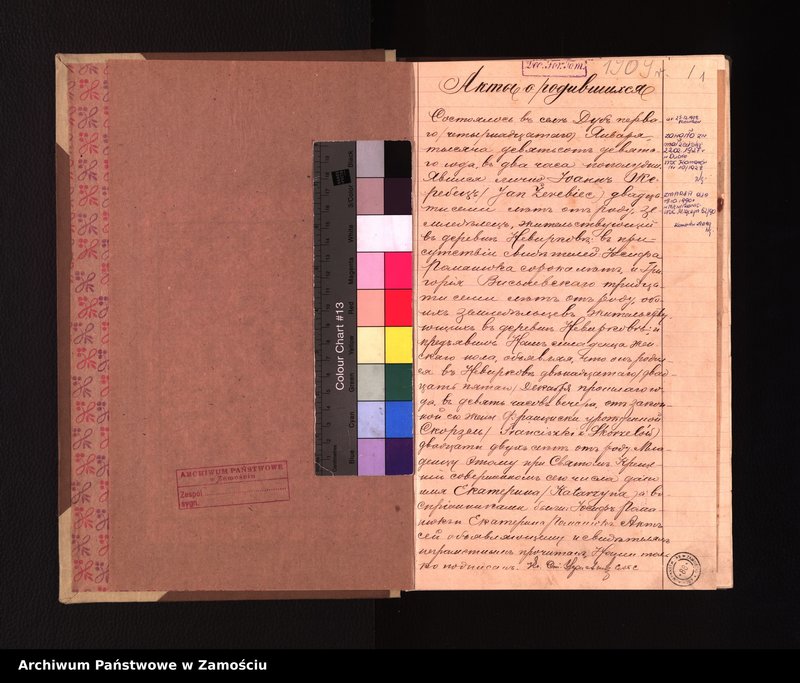 ARCHIWUM PAŃSTWOWE
w Zamościu
Zespół
sygn.
Colour Chart #13
Blue
Cyan
Green
Yellow
Red
Magenta
White
3/Color
Black
1909 г.
1
Акты о родившихся
Состоялось въ селѣ Дубѣ перва-
го /четырнадцатаго/ Января
тысяча девятьсотъ девята-
го года, въ два часа пополудни.
Явился лично Іоаннъ
/Jan Żerebiec/ двадца-
ти семи лѣтъ отъ роду, зе-
мледѣлецъ, жительствующій
въ деревнѣ Невирковѣ; въ при-
сутствіи свидѣтелей Іосифа
Романюка сорока лѣтъ, и Гри-
горія Висьневскаго тридца-
ти семи лѣтъ отъ роду, обо-
ихъ земледѣльцевъ жительству-
ющихъ въ деревнѣ Невирковѣ; и
предъявилъ Намъ младенца жен-
скаго пола, объявляя, что онъ родил-
ся въ Невирковѣ двѣнадцатаго /двад-
цать пятаго/ Декабря прошлаго го-
да, въ девять часовъ вечера, отъ закон-
ной его жены Франциски урожденной
Скорзеи / Franciszka
двадцати двухъ лѣтъ отъ роду. Мла-
денцу этому при Святомъ Креще-
ніи совершенномъ сего числа дано
имя Екатерина /Katarzyna/ а вос-
пріемниками были Іосифъ Рома-
нюкъ и Екатерина Актъ
сей объявляющему и свидѣтелямъ
неграмотнымъ прочитанъ, Нами толь-
ко подписанъ.
Archiwum Państwowe w Zamościu